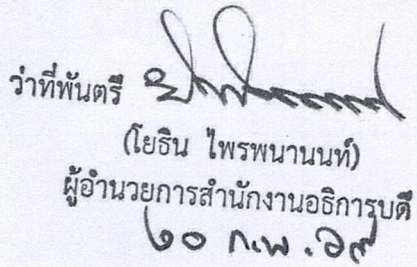 ว่าที่พันตรี
(โยธิน ไพรพนานนท์)
ผู้อำนวยการสำนักงานอธิการบดี
๒๐ ก.พ. ๖๙